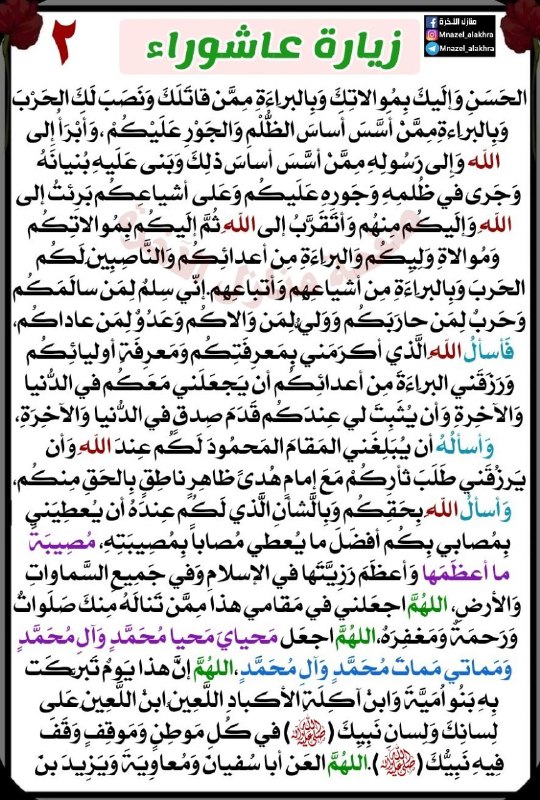 منازل الآخرة
Mnazel_alakhra
Mnazel_alakhra
زيارة عاشوراء
٢
الحَسَنِ وَإِليكَ بِمُوالاتِكَ وَبِالبراءَةِ مِمَّن قاتَلَكَ وَنَصَبَ لَكَ الحَرْبَ
وَبِالبراءةِ مِمَّنْ أسَّسَ أساسَ الظُّلْمِ وَالجَوْرِ عَلَيْكُمْ ،وَأَبْرَأُ إلى
اللّه وَإلى رَسُولِهِ مِمَّنْ أسَّسَ أساسَ ذلِكَ وَبَنى عَلَيهِ بُنيانَهُ
وَجَرى في ظُلمِهِ وَجَورِهِ عَلَيكُم وَعَلى أشياعِكُم بَرِئتُ إلى
اللّهِ وَإلَيكُم مِنهُم وَأتَقَرَّبُ إلى اللّهِ ثُمَّ إلَيكُم بِمُوالاتِكُم
وَمُوالاةِ وَلِيِكُم وَالبراءَةِ مِن أعدائِكُم وَالنَّاصِبِينَ لَكُم
الحَربَ وَبِالبراءَةِ مِن أشياعِهِم وَأتباعِهِم إنّي سِلمٌ لِمَن سالَمَكُم
وَحَربٌ لِمَن حارَبَكُم وَوَليٌ لِمَن وَالاكُم وَعَدُوٌ لِمَن عاداكُم،
فَأسألُ اللّهَ الَّذي أكرَمَني بِمَعرِفَتِكُم وَمَعرِفَةِ أوليائِكُم
وَرَزَقَني البراءَةَ مِن أعدائِكُم أن يَجعَلَني مَعَكُم في الدُّنيا
وَالآخرةِ وَأن يُثَبِتَ لي عِندَكُم قَدَمَ صِدقٍ في الدُّنيا وَالآخِرَةِ،
وَأسألُهُ أن يُبَلِغَني المَقامَ المَحمُودَ لَكُم عِندَ اللّهِ وَأن
يَرزُقَني طَلَبَ ثأرِكُمْ مَعَ إمامٍ هُدىً ظاهرٍ ناطِقٍ بِالحَقِ مِنكُم،
وَأسألُ اللّهَ بِحَقِكُم وَبِالشأنِ الَّذي لَكُم عِندَهُ أن يُعطِيَني
بِمُصابي بِكُم أفضَلَ ما يُعطي مُصاباً بِمُصِيبَتِهِ، مُصِيبَة
ما أعظَمَها وَأعظَمَ رَزِيَّتَها في الإسلامِ وَفي جَمِيعِ السَّماواتِ
وَالأرضِ، اللهُمَّ اجعَلني في مَقامي هذا مِمَّن تَنالَهُ مِنكَ صَلَواتٌ
وَرَحمَةٌ وَمَغفِرَةٌ، اللهُمَّ اجعَل مَحيايَ مَحيا مُحَمَّدٍ وَآلِ مُحَمَّدٍ
وَمَماتي مَماتَ مُحَمَّدٍ وَآلِ مُحَمَّدٍ، اللهُمَّ إنَّ هذا يَومٌ تَبرَّكَت
بِهِ بَنُو اُمَيَّةَ وَابنُ آكِلَةِ الأكبادِ اللَّعِينِ ابنُ اللَّعينِ عَلى
لسانكَ وَلسانِ نَبِيِكَ (ﷺ) في كُل مَوطِنٍ وَمَوقِفٍ وَقَفَ
فِيهِ نَبيُّكَ (ﷺ)، اللهُمَّ العَن أبا سُفيانَ وَمُعاوِيَةَ وَيَزِيدَ بنَ